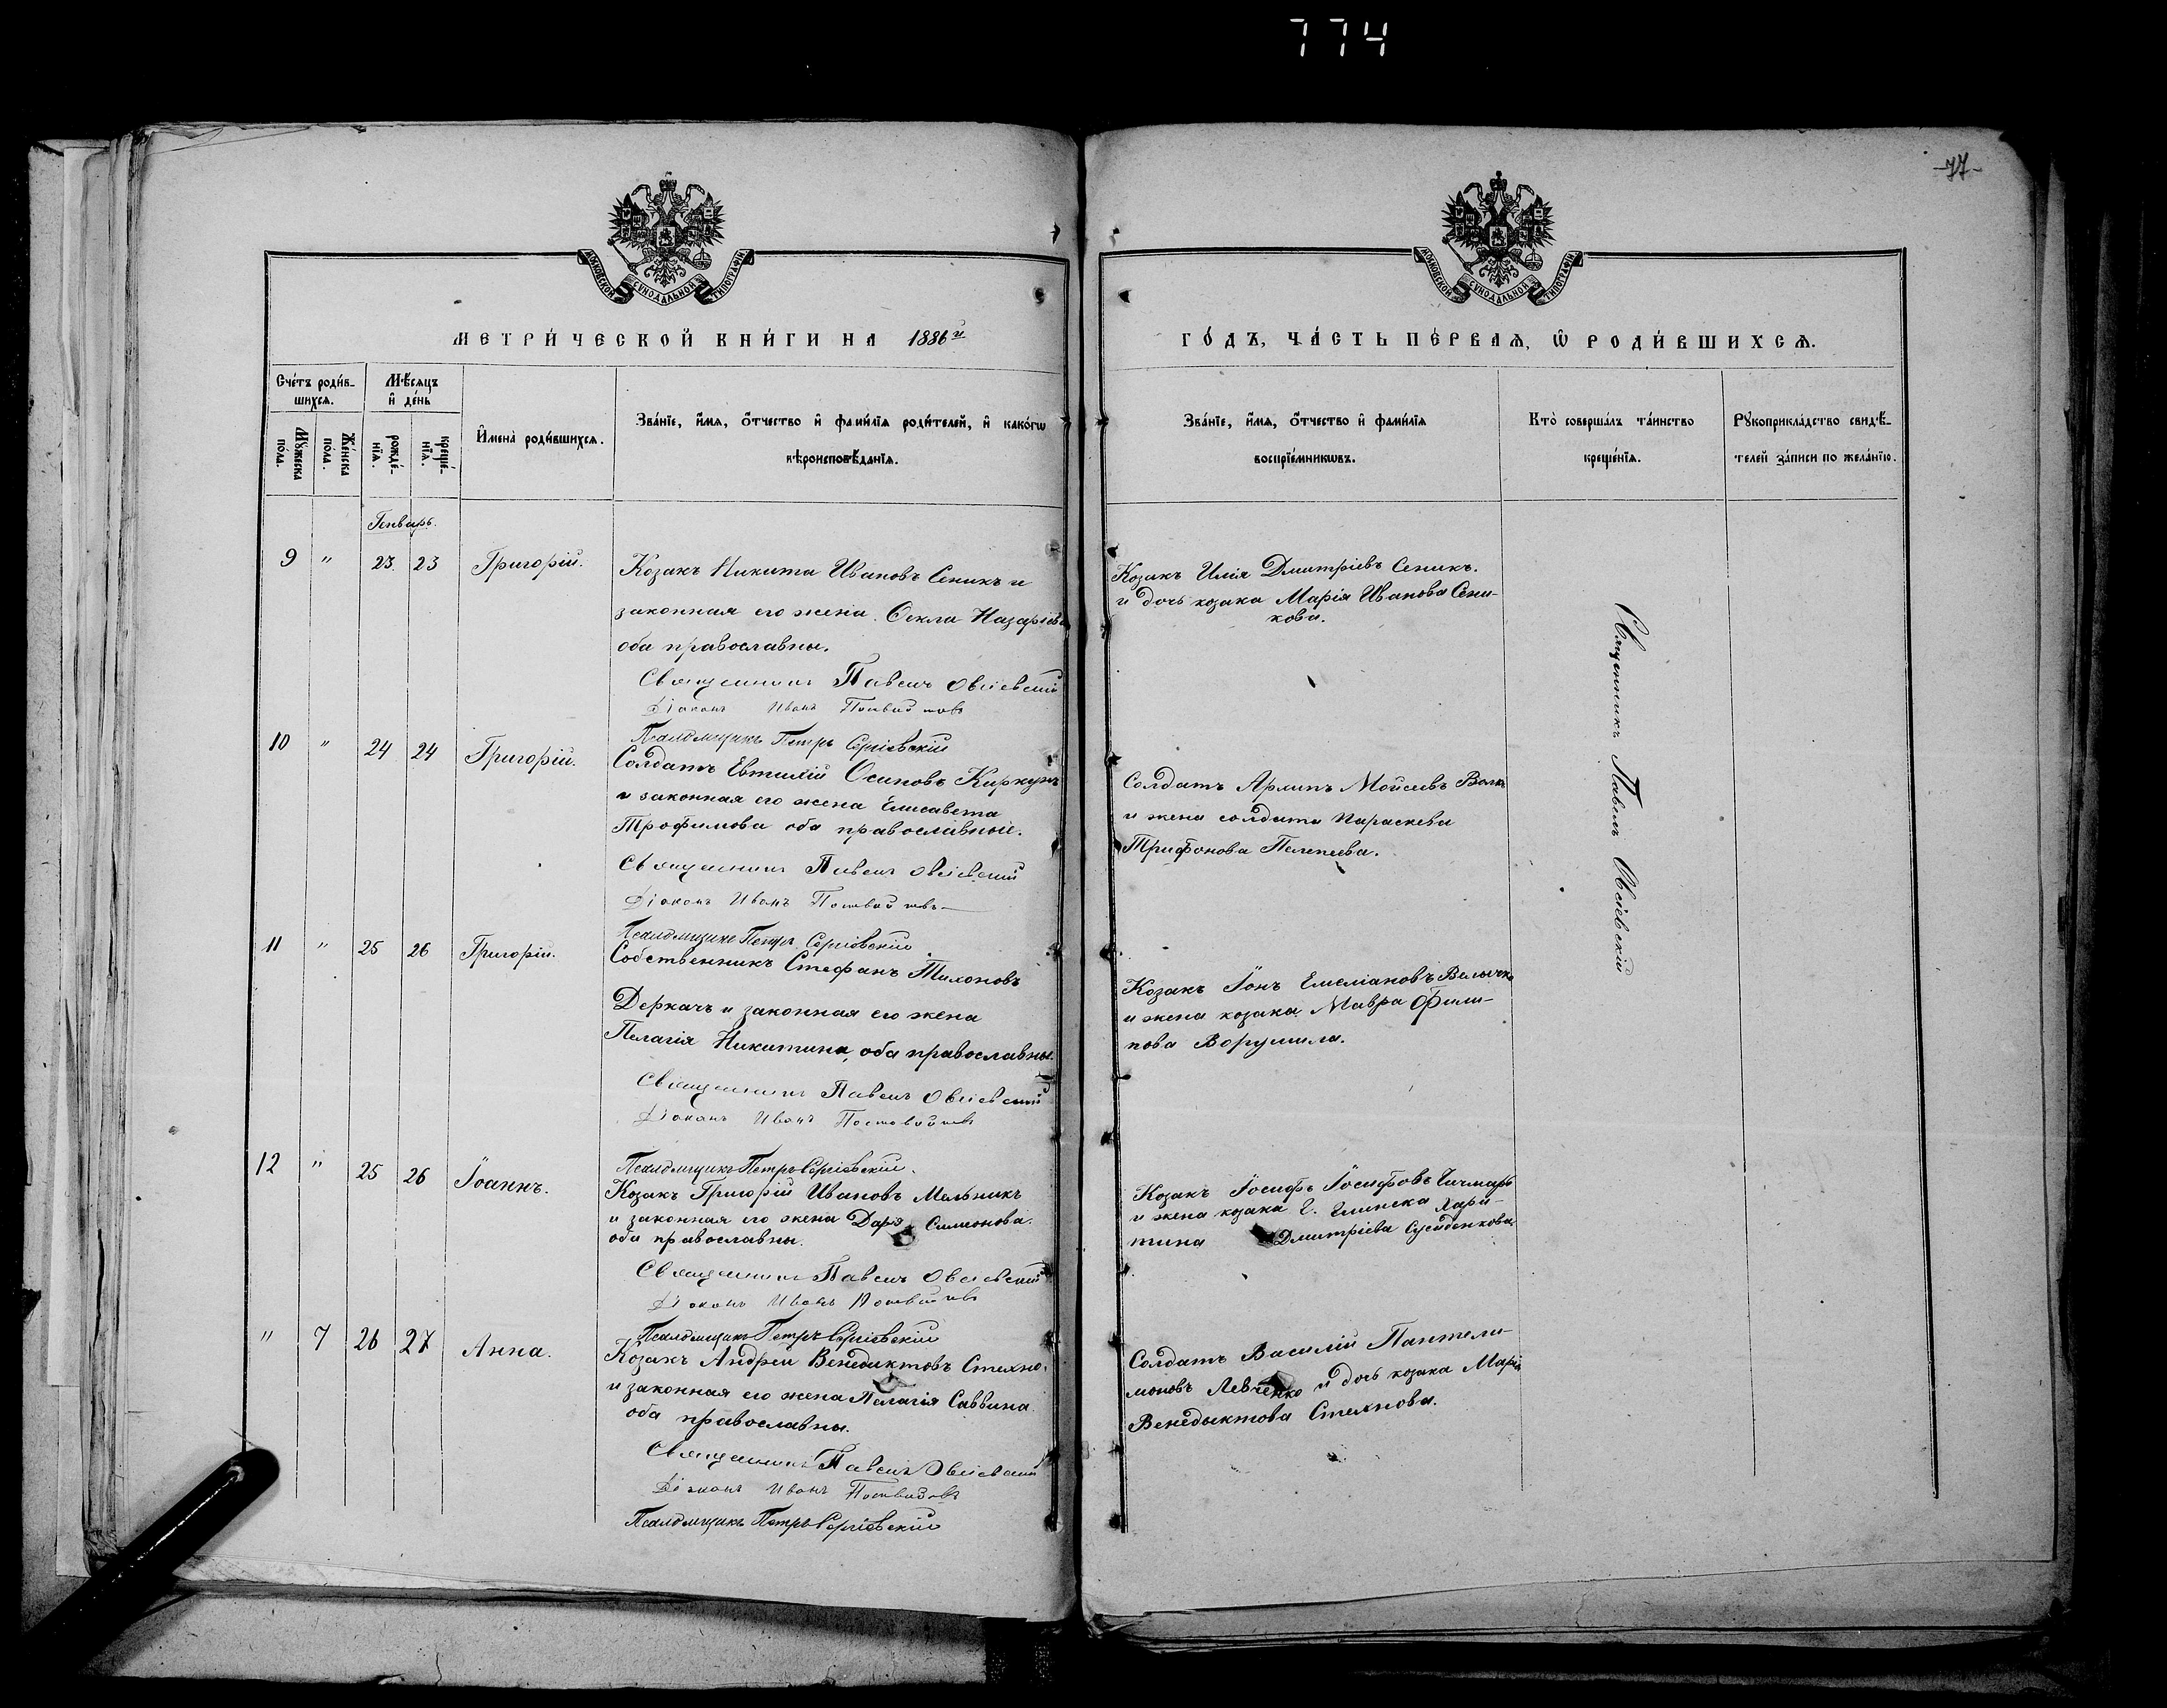 774
-77-
МОСКОВСКОЙ СѴНОДАЛЬНОЙ ТИПОГРАФІИ
МОСКОВСКОЙ СѴНОДАЛЬНОЙ ТИПОГРАФІИ
МЕТРИ́ЧЕСКОЙ КНИ́ГИ НА 1886й
ГО́ДЪ, ЧА́СТЬ ПЕ́РВАѦ, Ѡ РОДИ́ВШИХСѦ.
Сче́тъ роди́в-
шихсѧ.
Мꙋ́жеска
по́ла.
Же́нска
по́ла.
Мѣ́сяцъ
и҆ де́нь
рожде́-
нїѧ.
креще́-
нїѧ.
И҆мена̀ роди́вшихсѧ.
Зва́нїе, и҆́мѧ, ѻ҆́тчество и҆ фами́лїѧ роди́телей, и҆ како́гѡ
вѣроисповѣ́данїѧ.
Зва́нїе, и҆́мѧ, ѻ҆́тчество и҆ фами́лїѧ
воспрїе́мникѡвъ.
Кто̀ соверша́лъ та́инство
креще́нїѧ.
Рꙋкоприкла́дство свидѣ́-
телей за́писи по жела́нїю.
Генварь.
9 " 23. 23 Григорій.
Козакъ Никита Ивановъ Сеникъ и
законная его жена Ѳекла Назаріева
оба православны.
Священникъ Павелъ Овсіевскій
Діаконъ Иванъ
Псаломщикъ Петръ Сергіевскій
Козакъ Илія Дмитріевъ Сеникъ.
и дочь козака Марія Иванова Сени-
кова.
Священникъ Павелъ Овсіевскій
10 " 24 24 Григорій.
Солдатъ Евтихій Осиповъ
и законная его жена Елисавета
Трофимова оба православные.
Священникъ Павелъ Овсіевскій
Діаконъ Иванъ
Псаломщикъ Петръ Сергіевскій
Солдатъ Моисеевъ
и жена солдата Параскева
Трифонова
11 " 25 26 Григорій.
Собственникъ Стефанъ Тихоновъ
Деркачъ и законная его жена
Пелагія Никитина, оба православны.
Священникъ Павелъ Овсіевскій
Діаконъ Иванъ
Псаломщикъ Петръ Сергіевскій
Козакъ Іонъ Емеліановъ
и жена козака Мавра Фили-
пова
12 " 25 26 Іоаннъ.
Козакъ Григорій Ивановъ Мельникъ
и законная его жена Симеонова.
оба православны.
Священникъ Павелъ Овсіевскій
Діаконъ Иванъ
Псаломщикъ Петръ Сергіевскій
Козакъ Іосифъ Іосифовъ
и жена козака Хари-
тина Дмитріева
" 7 26 27 Анна.
Козакъ Андрей Венедиктовъ
и законная его жена Пелагія Саввина
оба православны.
Священникъ Павелъ Овсіевскій
Діаконъ Иванъ
Псаломщикъ Петръ Сергіевскій
Солдатъ Василій Пантели-
моновъ Левченко и дочь козака Марія
Венедыктова Стехнова.